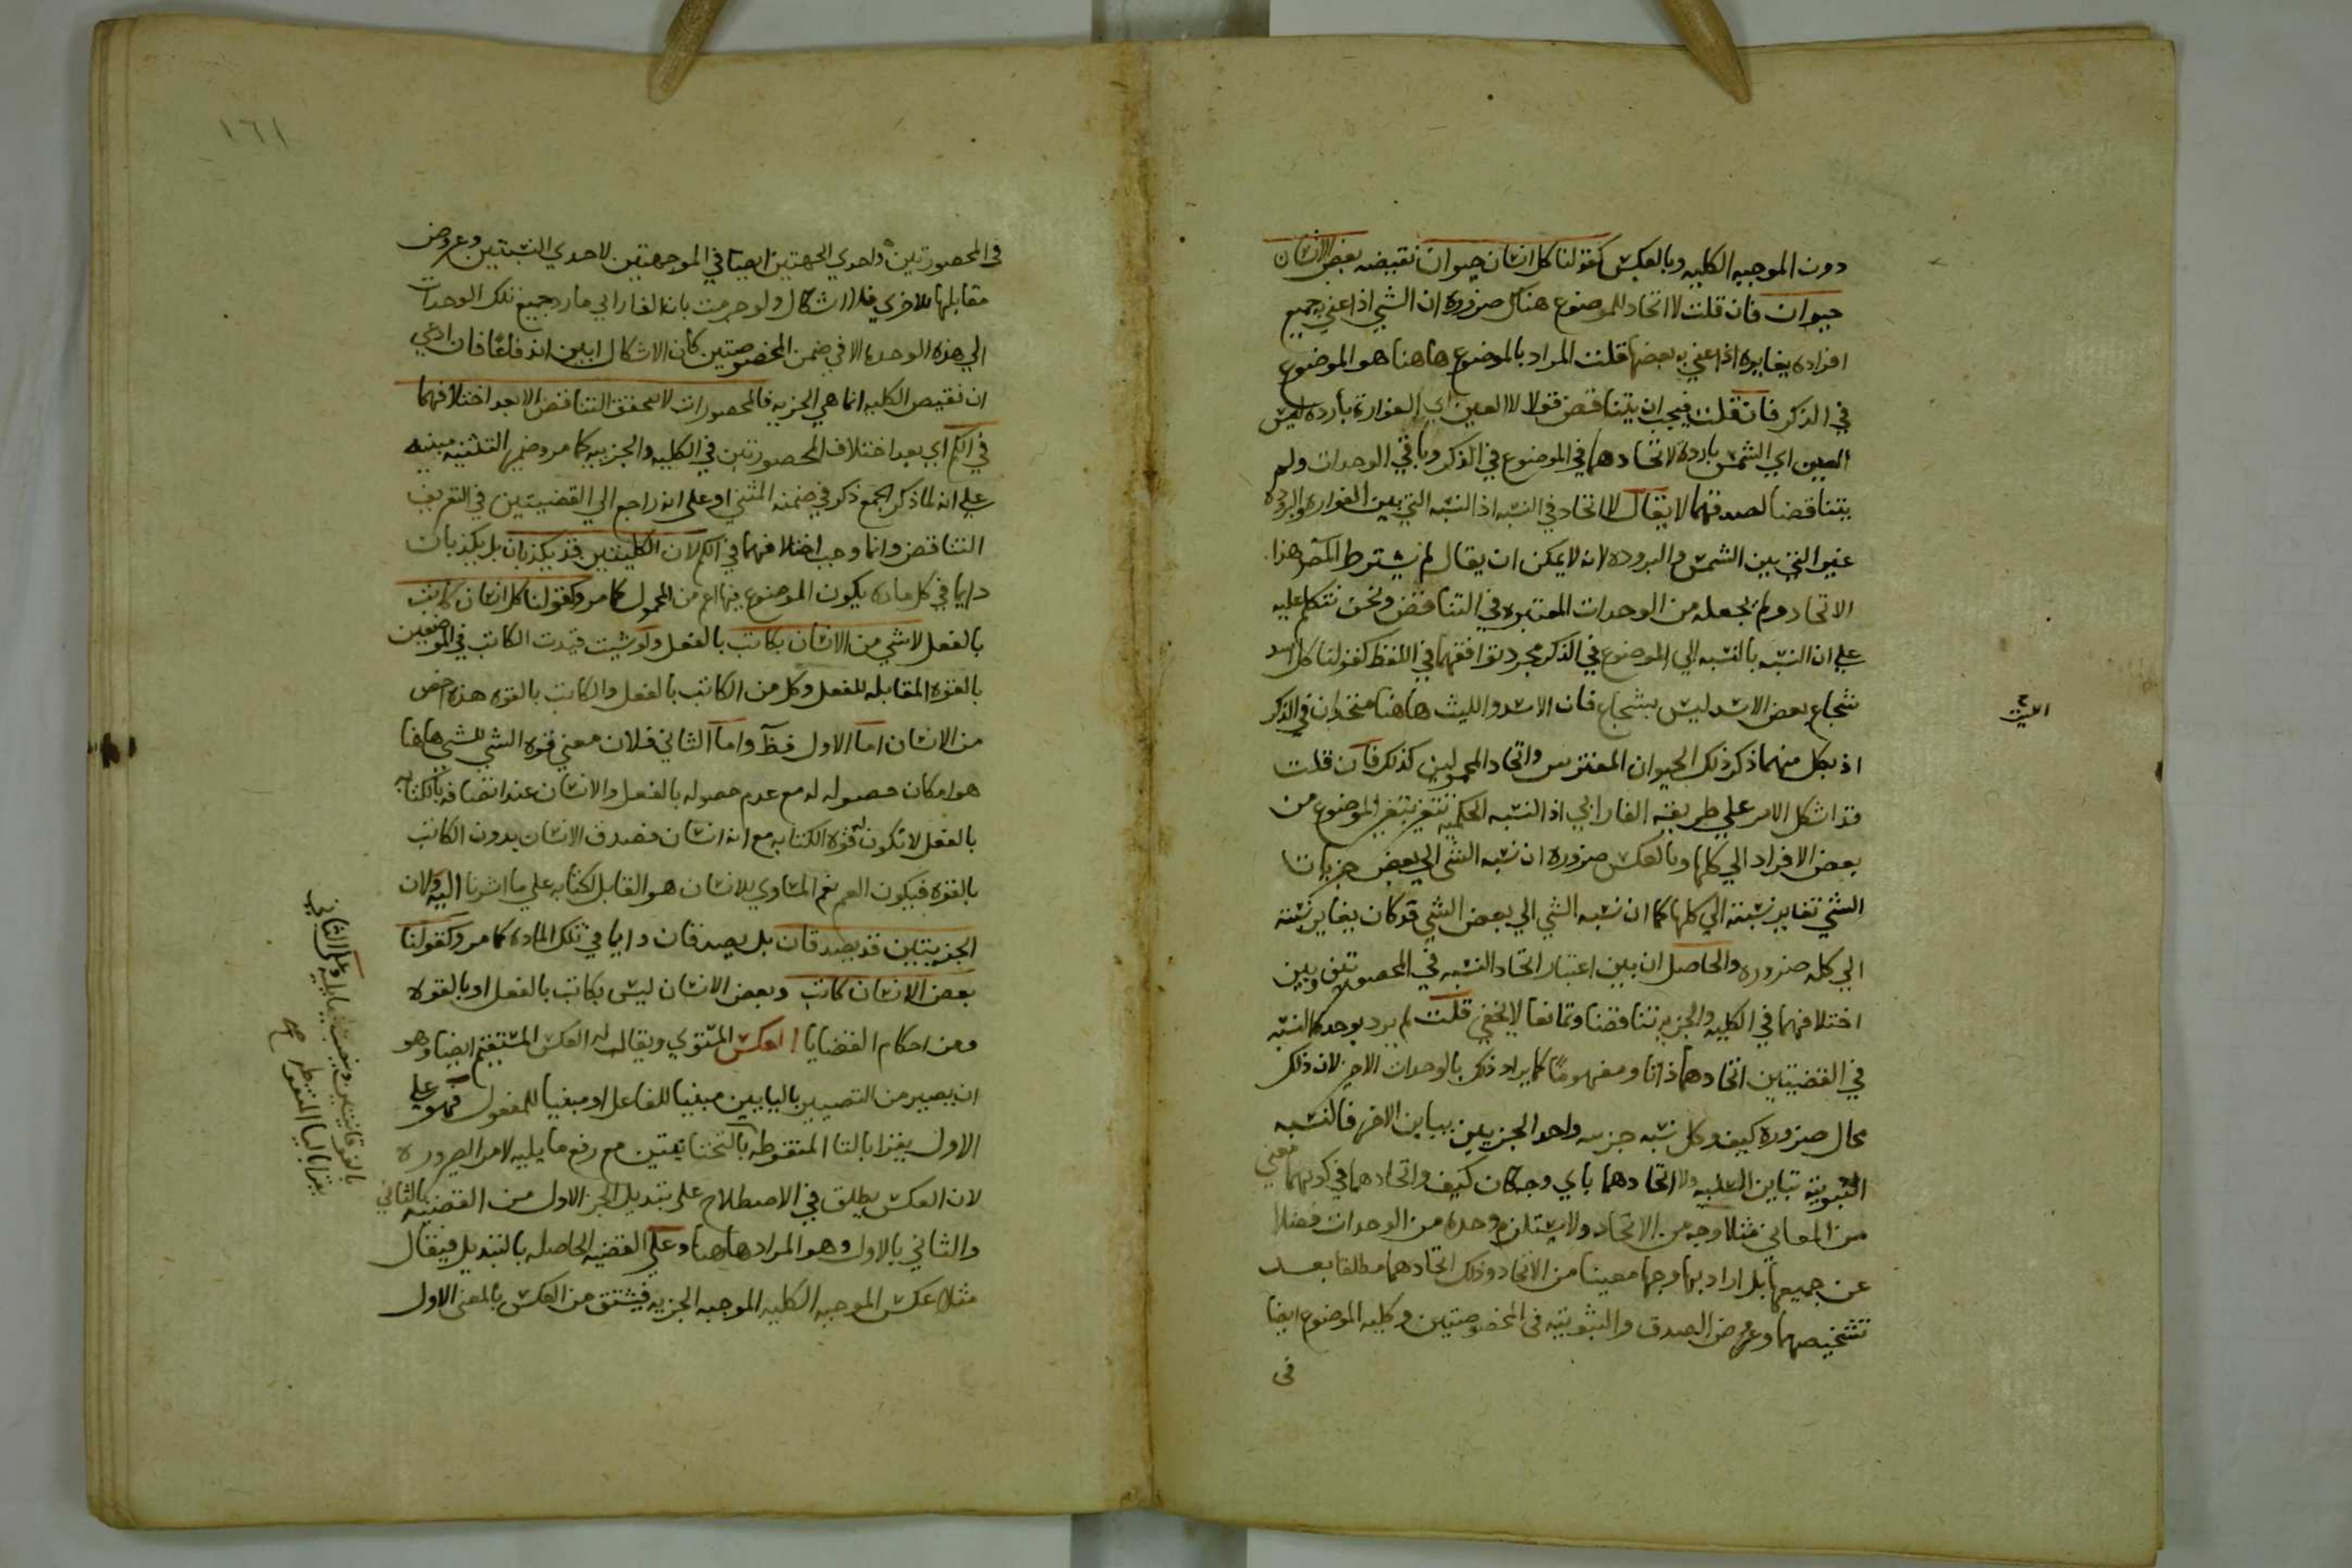 دون الموجبه الكليه وبالعكس كقولنا كل انسان حيوان نقيضه بعض الانسان
حيوان فان قلت لا اتحاد للموضوع هناك ضروره ان الشي اذا عني به جميع
افراده يغايره اذا عني به بعضها قلت المراد بالموضوع هاهنا هو الموضوع
في الذكر فان قلت فيجب ان يتناقض قولا لا العين اي الفوارة بارده ليس
العين اي الشمس بارده لاتحادهما في الموضوع في الذكر وباقي الوحدات ولم
يتناقضا لصدقهما لا يقال لا اتحاد في النسبه اذ النسبه التي بين الفواره والبروده
غير التي بين الشمس والبروده لانه لا يمكن ان يقال لم يشترط المص هذا
الاتحاد ولم يجعله من الوحدات المعتبره في التناقض ونحن نتكلم عليه
علي ان النسبه بالنسبه الي الموضوع في الذكر مجرد توافقهما في اللفظ كقولنا كل اسد
شجاع بعض الاسد ليس بشجاع فان الاسد والليث هاهنا متحدان في الذكر
الليث
اذ بكل منهما ذكر ذلك الحيوان المفترس واتحاد المحمولين كذلك فان قلت
قد اشكل الامر علي طريقه الفارابي اذ النسبه الحكميه تتغير بتغير الموضوع من
بعض الافراد الي كلها وبالعكس ضروره ان نسبه الشي الي بعض جزيات
الشي تغاير نسبته الي كلها كما ان نسبه الشي الي بعض الشي قد كان يغاير نسبته
الي كله ضروره والحاصل ان بين اعتبار اتحاد النسبه في المحصورتين وبين
اختلافهما في الكليه والجزيه تناقضا وتمانعا لا يخفي قلت لم يرد بوحدة النسبه
في القضيتين اتحادهما ذاتا ومفهوما كما يراد ذلك بالوحدات الاخر لان ذلك
محال ضرورة كيف وكل نسبه جزيه واحد الجزيين يباين الاخر فالنسبه
الثبوتيه تباين السلبيه ولا اتحادهما باي وجه كان كيف واتحادهما في كونهما معني
من المعاني مثلا وجه من الاتحاد ولا يستلزم وحده من الوحدات فضلا
عن جميعها بل اراد بها وجها معينا من الاتحاد وذلك اتحادهما مطلقا بعد
تشخيصهما وعروض الصدق والثبوتيه في المخصوصتين وكليه الموضوع ايضا
في
١٦١
في المحصورتين واحدي الجهتين ايضا في الموجهتين لاحدي النسبتين وعروض
مقابلها للاخري فلا اشكال ولو جزمت بان الفارابي ما رد جميع تلك الوحدات
الي هذه الوحده الا في ضمن المخصوصتين كان الاشكال ابين اندفاعا فان ادعي
ان نقيض الكليه انما هي الجزيه فالمحصورات لا يتحقق التناقض الا بعد اختلافهما
في الكم اي بعد اختلاف المحصورتين في الكليه والجزييه كما مر وضمير التثنيه مبنيه
علي انه لما ذكر الجمع ذكر في ضمنه المثني او علي انه راجع الي القضيتين في التعريف
التناقض وانما وجب اختلافهما في الكم لان الكليتين قد يكذبان بل يكذبان
دايما في كل ماده يكون الموضوع فيها اعم من المحمول كما مر وكقولنا كل انسان كاتب
بالفعل لا شي من الانسان بكاتب بالفعل ولو شيت قيدت الكاتب في الموضعين
بالقوه المقابله للفعل وكل من الكاتب بالفعل والكاتب بالقوه هذه اخص
من الانسان اما الاول فظ واما الثاني فلان معني قوه الشي للشي هاهنا
هو امكان حصوله له مع عدم حصوله بالفعل والانسان عند اتصافه بالكتابه
بالفعل لا تكون له قوه الكتابه مع انه انسان فصدق الانسان بدون الكاتب
بالقوه فيكون اعم نعم المساوي للانسان هو القابل لكتابه علي ما اشرنا اليه ولان
الجزييتين قد يصدقان بل يصدقان دايما في تلك الماده كما مر وكقولنا
بعض الانسان كاتب وبعض الانسان ليس بكاتب بالفعل او بالقوه
ومن احكام القضايا العكس المستوي ويقال له العكس المستقيم ايضا وهو
ان يصير من التصيير باليايين مبنيا للفاعل او مبنيا للمفعول فهو علي
الاول يقرا بالتا المنقوطه بالتحتانيتين مع رفع ما يليه لامر الضروره
لان العكس يطلق في الاصطلاح علي تبديل الجز الاول من القضيه بالثاني
والثاني بالاول وهو المراد هاهنا وعلي القضيه الحاصله بالتبديل فيقال
مثلا عكس الموجبه الكليه الموجبه الجزيه فيشتق من العكس بالمعني الاول
بالفوقانيتين ونصب ما يليه وعلي الثاني
يقرا باليا المنقوطه